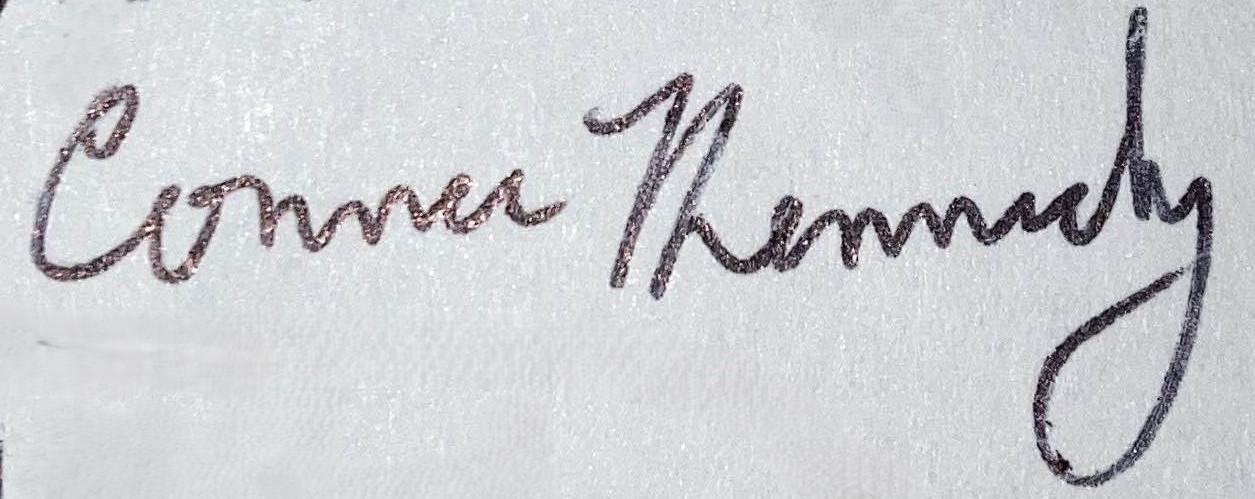 Conner Kennedy